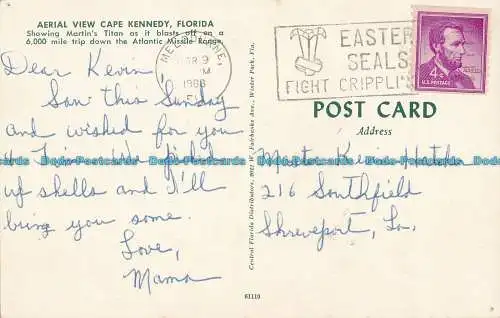 AERIAL VIEW CAPE KENNEDY, FLORIDA
Showing Martin's Titan as it blasts off on a
6,000 mile trip down the Atlantic Missile Range.
Dear Kevin,
Saw this Sunday
and wished for you
up shells and I'll
bring you some.
Love,
Mama
MELBOURNE,
9
PM
1966
FL
EASTER
SEALS
FIGHT CRIPPLI
4¢
U.S. POSTAGE
POST CARD
Address
Master Kevin
216 Southfield
Shreveport, La.
Central Florida Distributors, Fairbanks Ave., Winter Park, Fla.
61110
Bodo-Postcards Bodo-Postcards Bodo-Postcards Bodo-Postcards